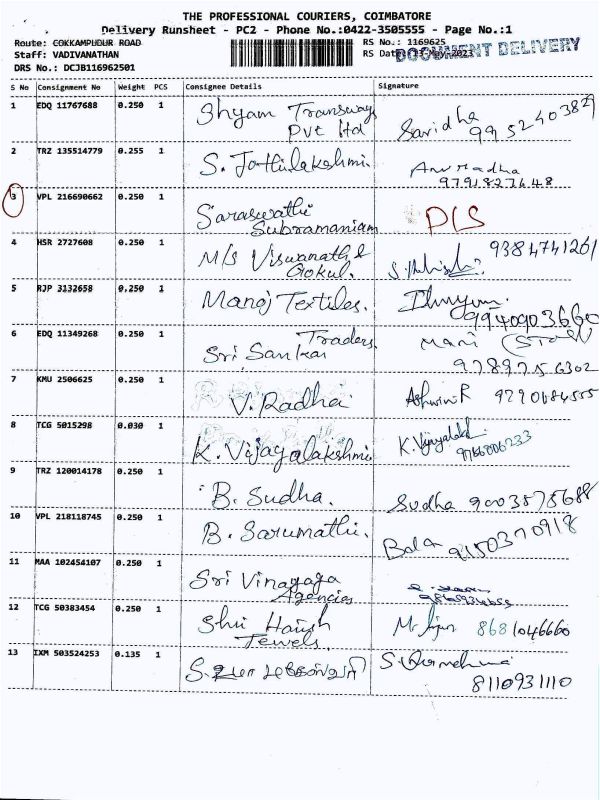 THE PROFESSIONAL COURIERS, COIMBATORE
Delivery Runsheet - PC2 - Phone No.:0422-3505555 - Page No.:1
Route: COKKAMPUDUR ROAD RS No.: 1169625
Staff: VADIVANATHAN RS Date: 13-May-2023 DOCUMENT DELIVERY
DRS No.: DCJB116962501
S No Consignment No Weight PCS Consignee Details Signature
1 EDQ 11767688 0.250 1 Shyam Transways Pvt ltd Savidha
2 TRZ 135514779 0.255 1 S. Jothilakshmi. Anuradha 9791827648
3 VPL 216690662 0.250 1 Saraswathi Subramaniam D/S
4 HSR 2727608 0.250 1 M/S Viswanath & Gokul. 9384741261
5 RJP 3132658 0.250 1 Manoj Textiles. 9940903660
6 EDQ 11349268 0.250 1 Sri Sankar Traders. Mani 9789756302
7 KMU 2506625 0.250 1 V. Radha Ashwin R
8 TCG 5015298 0.030 1 K. Vijayalakshmi K. Vijayalak 9766006233
9 TRZ 120014178 0.250 1 B. Sudha. Sudha 9003575688
10 VPL 218118745 0.250 1 B. Sarumathi. Bala 9150370918
11 MAA 102454107 0.250 1 Sri Vinayaga Agencies
12 TCG 50383454 0.250 1 Shri Harish Jewels. 8681046660
13 IXM 503524253 0.135 1 8110931110